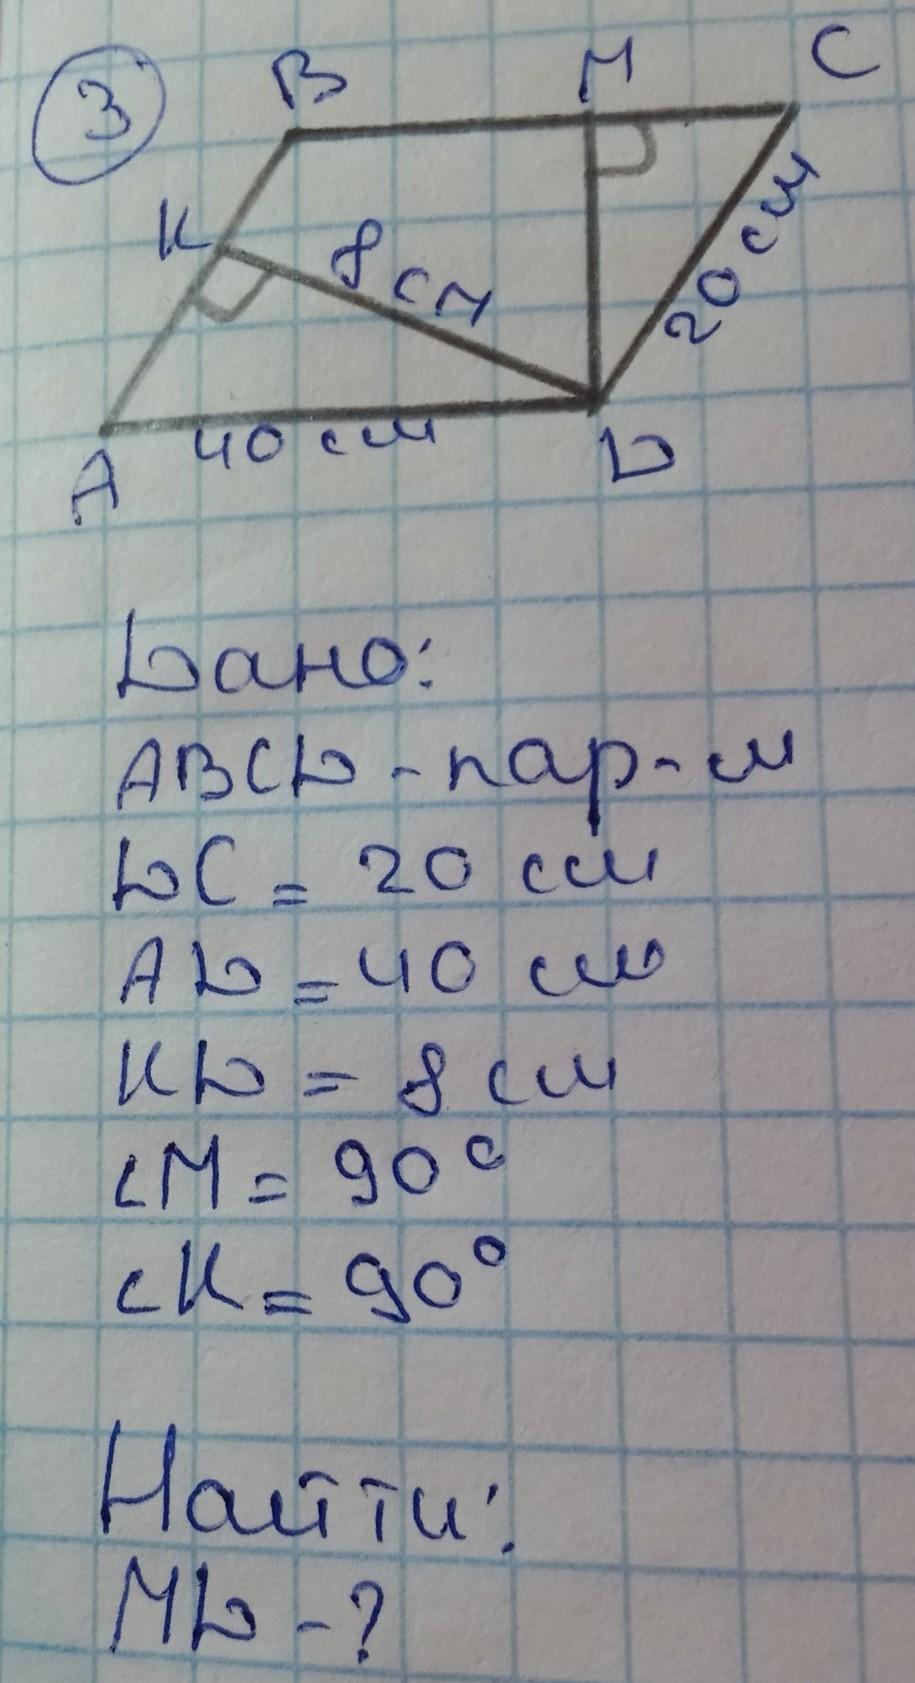 3
В М С
К
8 см
20 см
40 см
А D
Dано:
ABCD - пар-м
DC = 20 см
AD = 40 см
KD = 8 см
∠M = 90°
∠K = 90°
Найти:
MD - ?